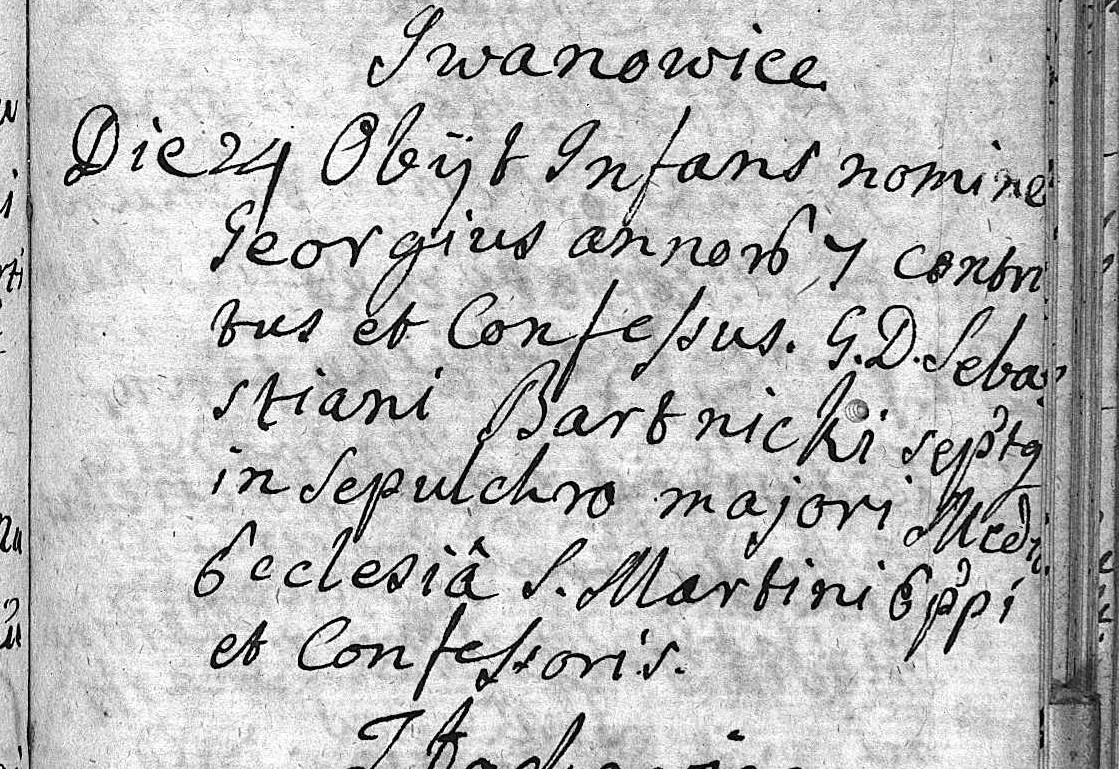 Iwanowice
Die 24 Obijt Infans nomine
Georgius annorũ 7 contri
tus et Confessus. G. D. Seba
stiani Bartnicki septq
in sepulchro majori Medi
Ecclesiâ S. Martini Eppi
et Confessoris.